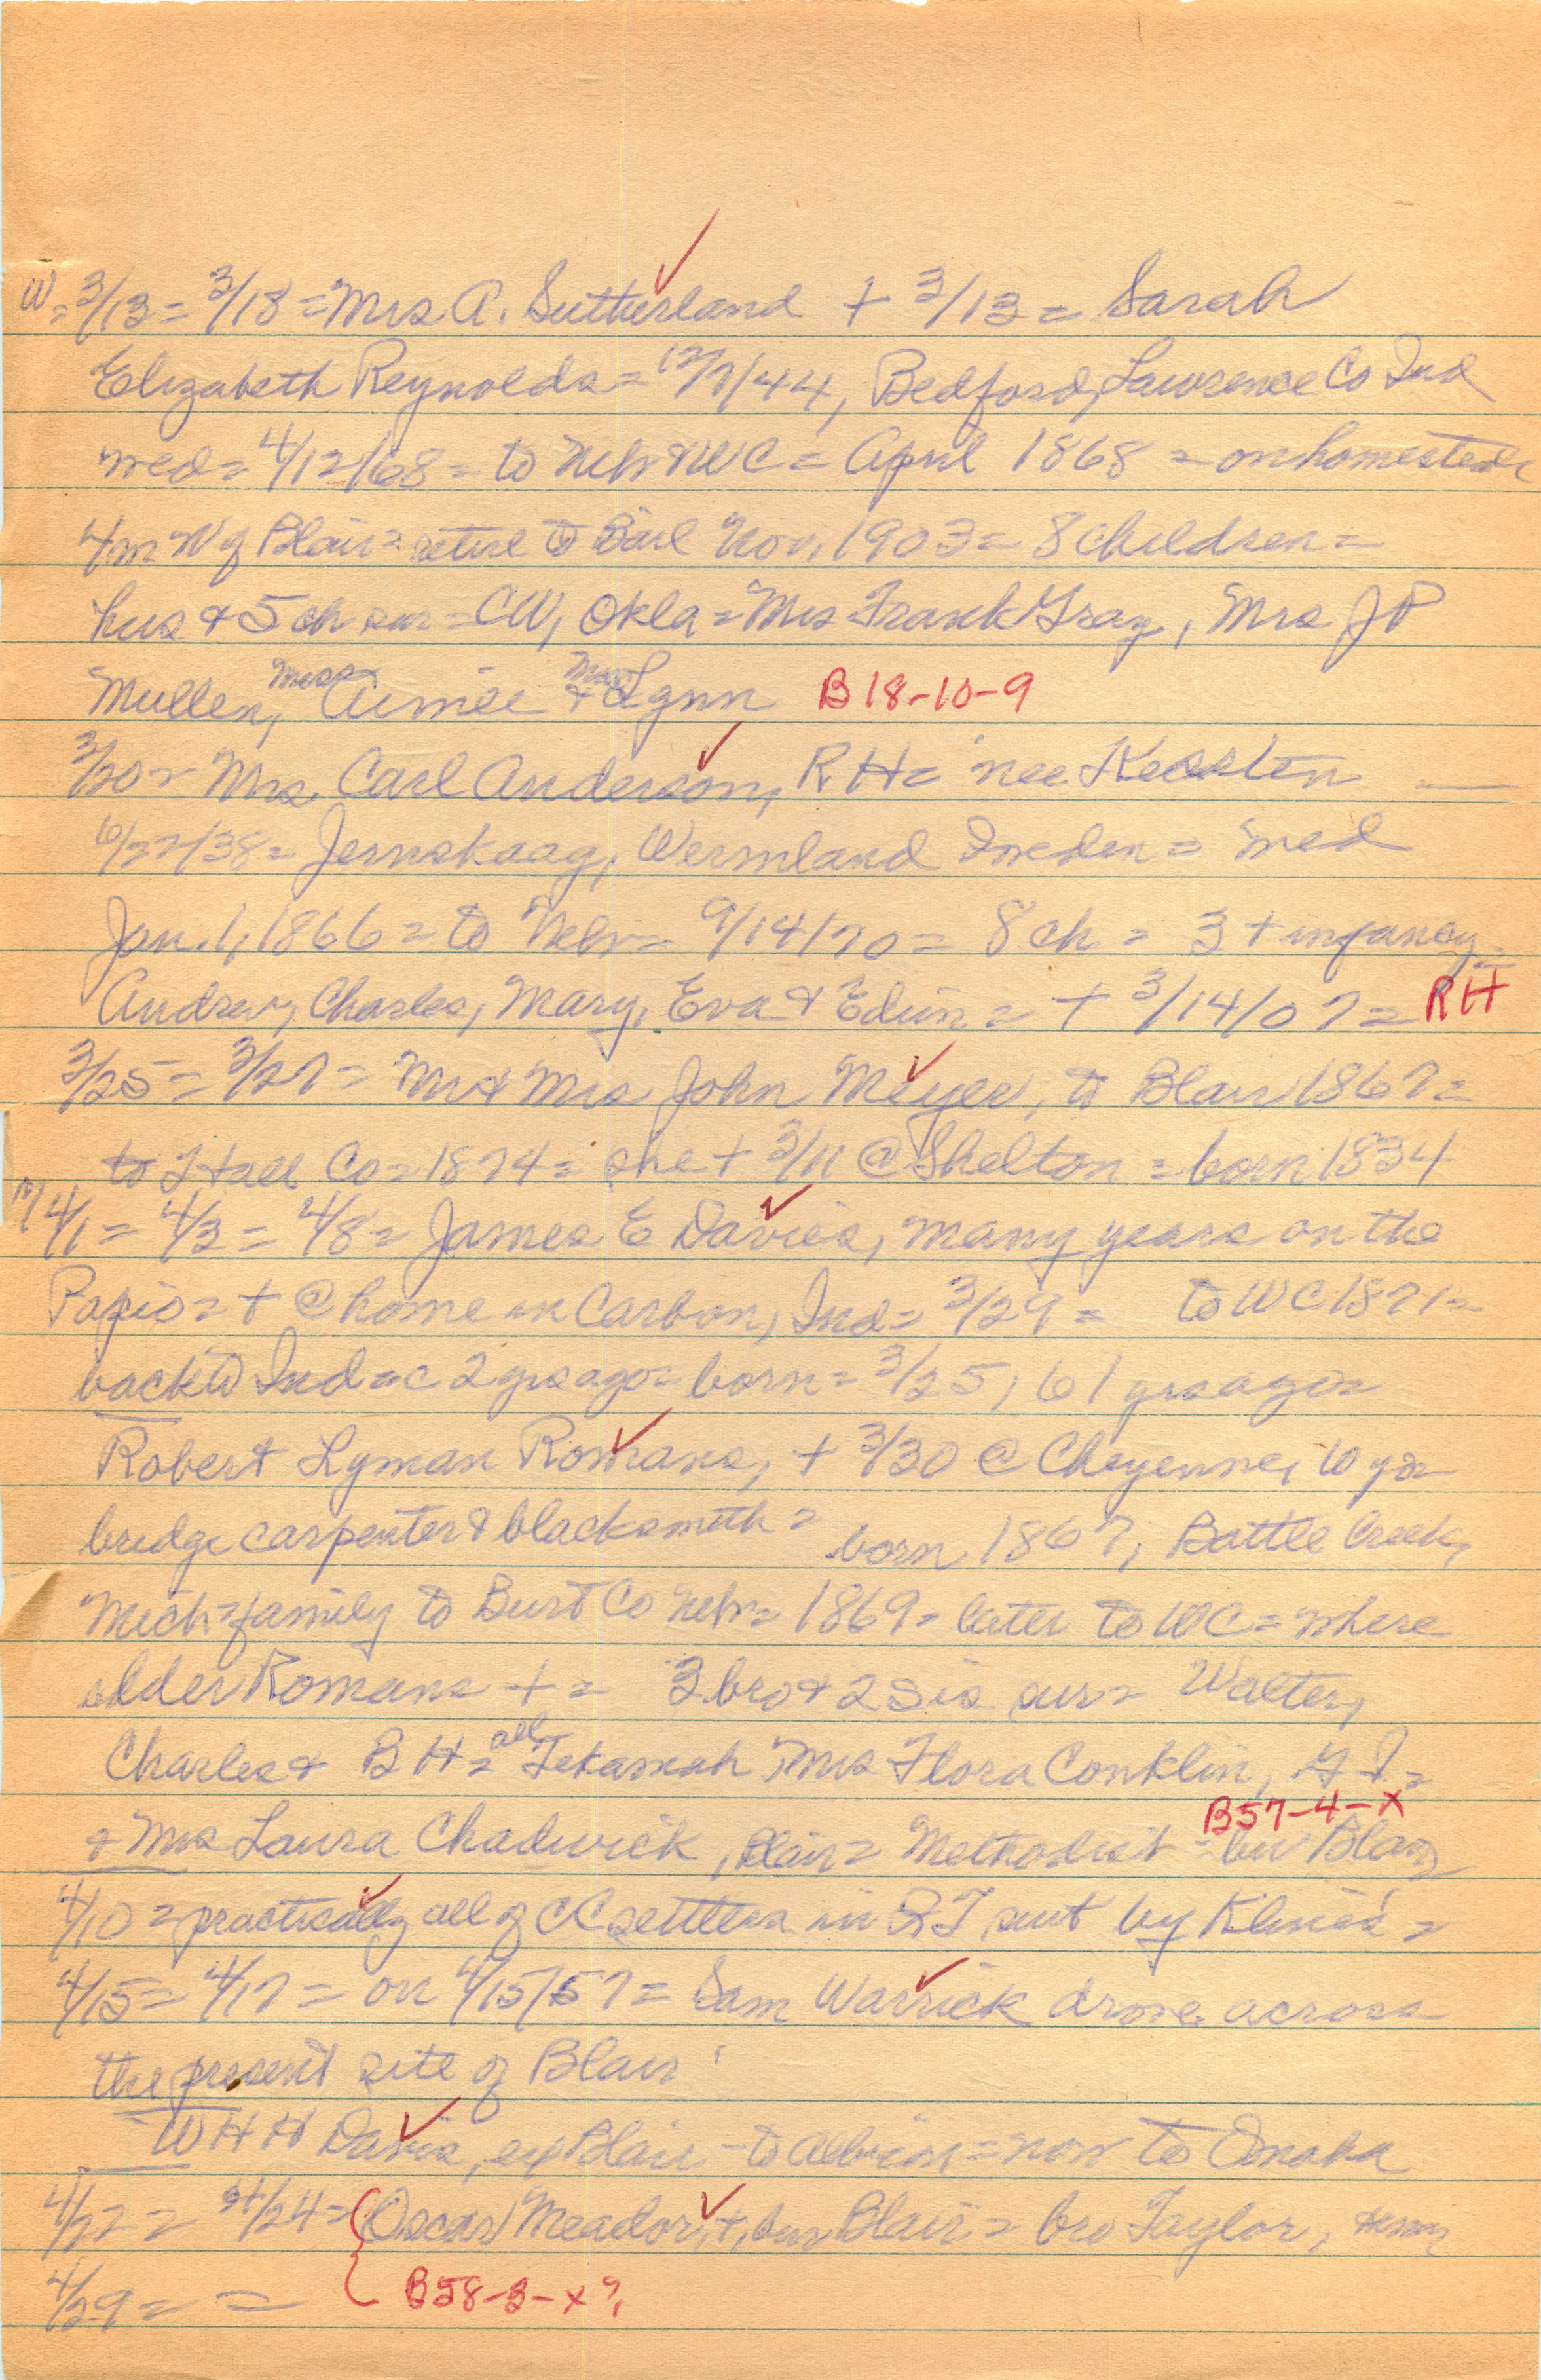 W = 3/13 = 3/18 = Mrs A. Sutherland + 3/13 = Sarah
Elizabeth Reynolds = 12/7/44, Bedford, Lawrence Co Ind
med = 4/12/68 = to Nebr & WC = April 1868 = on homestead
4 m W of Blair = retire to Nov. 1903 = 8 children =
hus & 5 ch sur = CW, Okla = Mrs Frank Gray, Mrs J P
Mullen, Miss Aimee & Lynn B 18-10-9
3/20 = Mrs. Carl Anderson, R H = nee
/22/38 = Jernskaag, Wermland Sweden = med
Jan. 1, 1866 = to Nebr = 9/14/70 = 8 ch = 3 + infancy =
Andrew, Charles, Mary, Eva & Edwin = + 3/14/07 = RH
3/25 = 3/27 = Mr & Mrs John Meyer, to Blair 1867 =
to Hall Co = 1874 = she + 3/11 @ Shelton = born 1834
4/1 = 4/3 = 4/8 = James E Davies, many years on the
Papio = + @ home in Carbon, Ind = 3/29 = to WC 1871 =
back to Ind = c 2 yrs ago = born = 3/25, 61 yrs ago =
Robert Lyman Romans, + 3/30 @ Cheyenne, 10 yr
bridge carpenter & blacksmith = born 1867, Battle Creek,
Mich = family to Burt Co Nebr = 1869 = later to WC = where
elder Romans + = 3 bro & 2 sis sur = Walter,
Charles & B H = all Tekamah, Mrs Flora Conklin, G I =
B57-4-X
& Mrs Laura Chadwick, Blair = Methodist = bur Blair
4/10 = practically all of CC settlers in sent by =
4/15 = 4/17 = on 4/15/57 = Sam Warrick drove across
the present site of Blair
W H H Davis, ex Blair - to Albion = now to Omaha
4/22 = 4/24 = Oscar Meador, +, bur Blair = bro Taylor,
4/29 = = B58-3-X ?